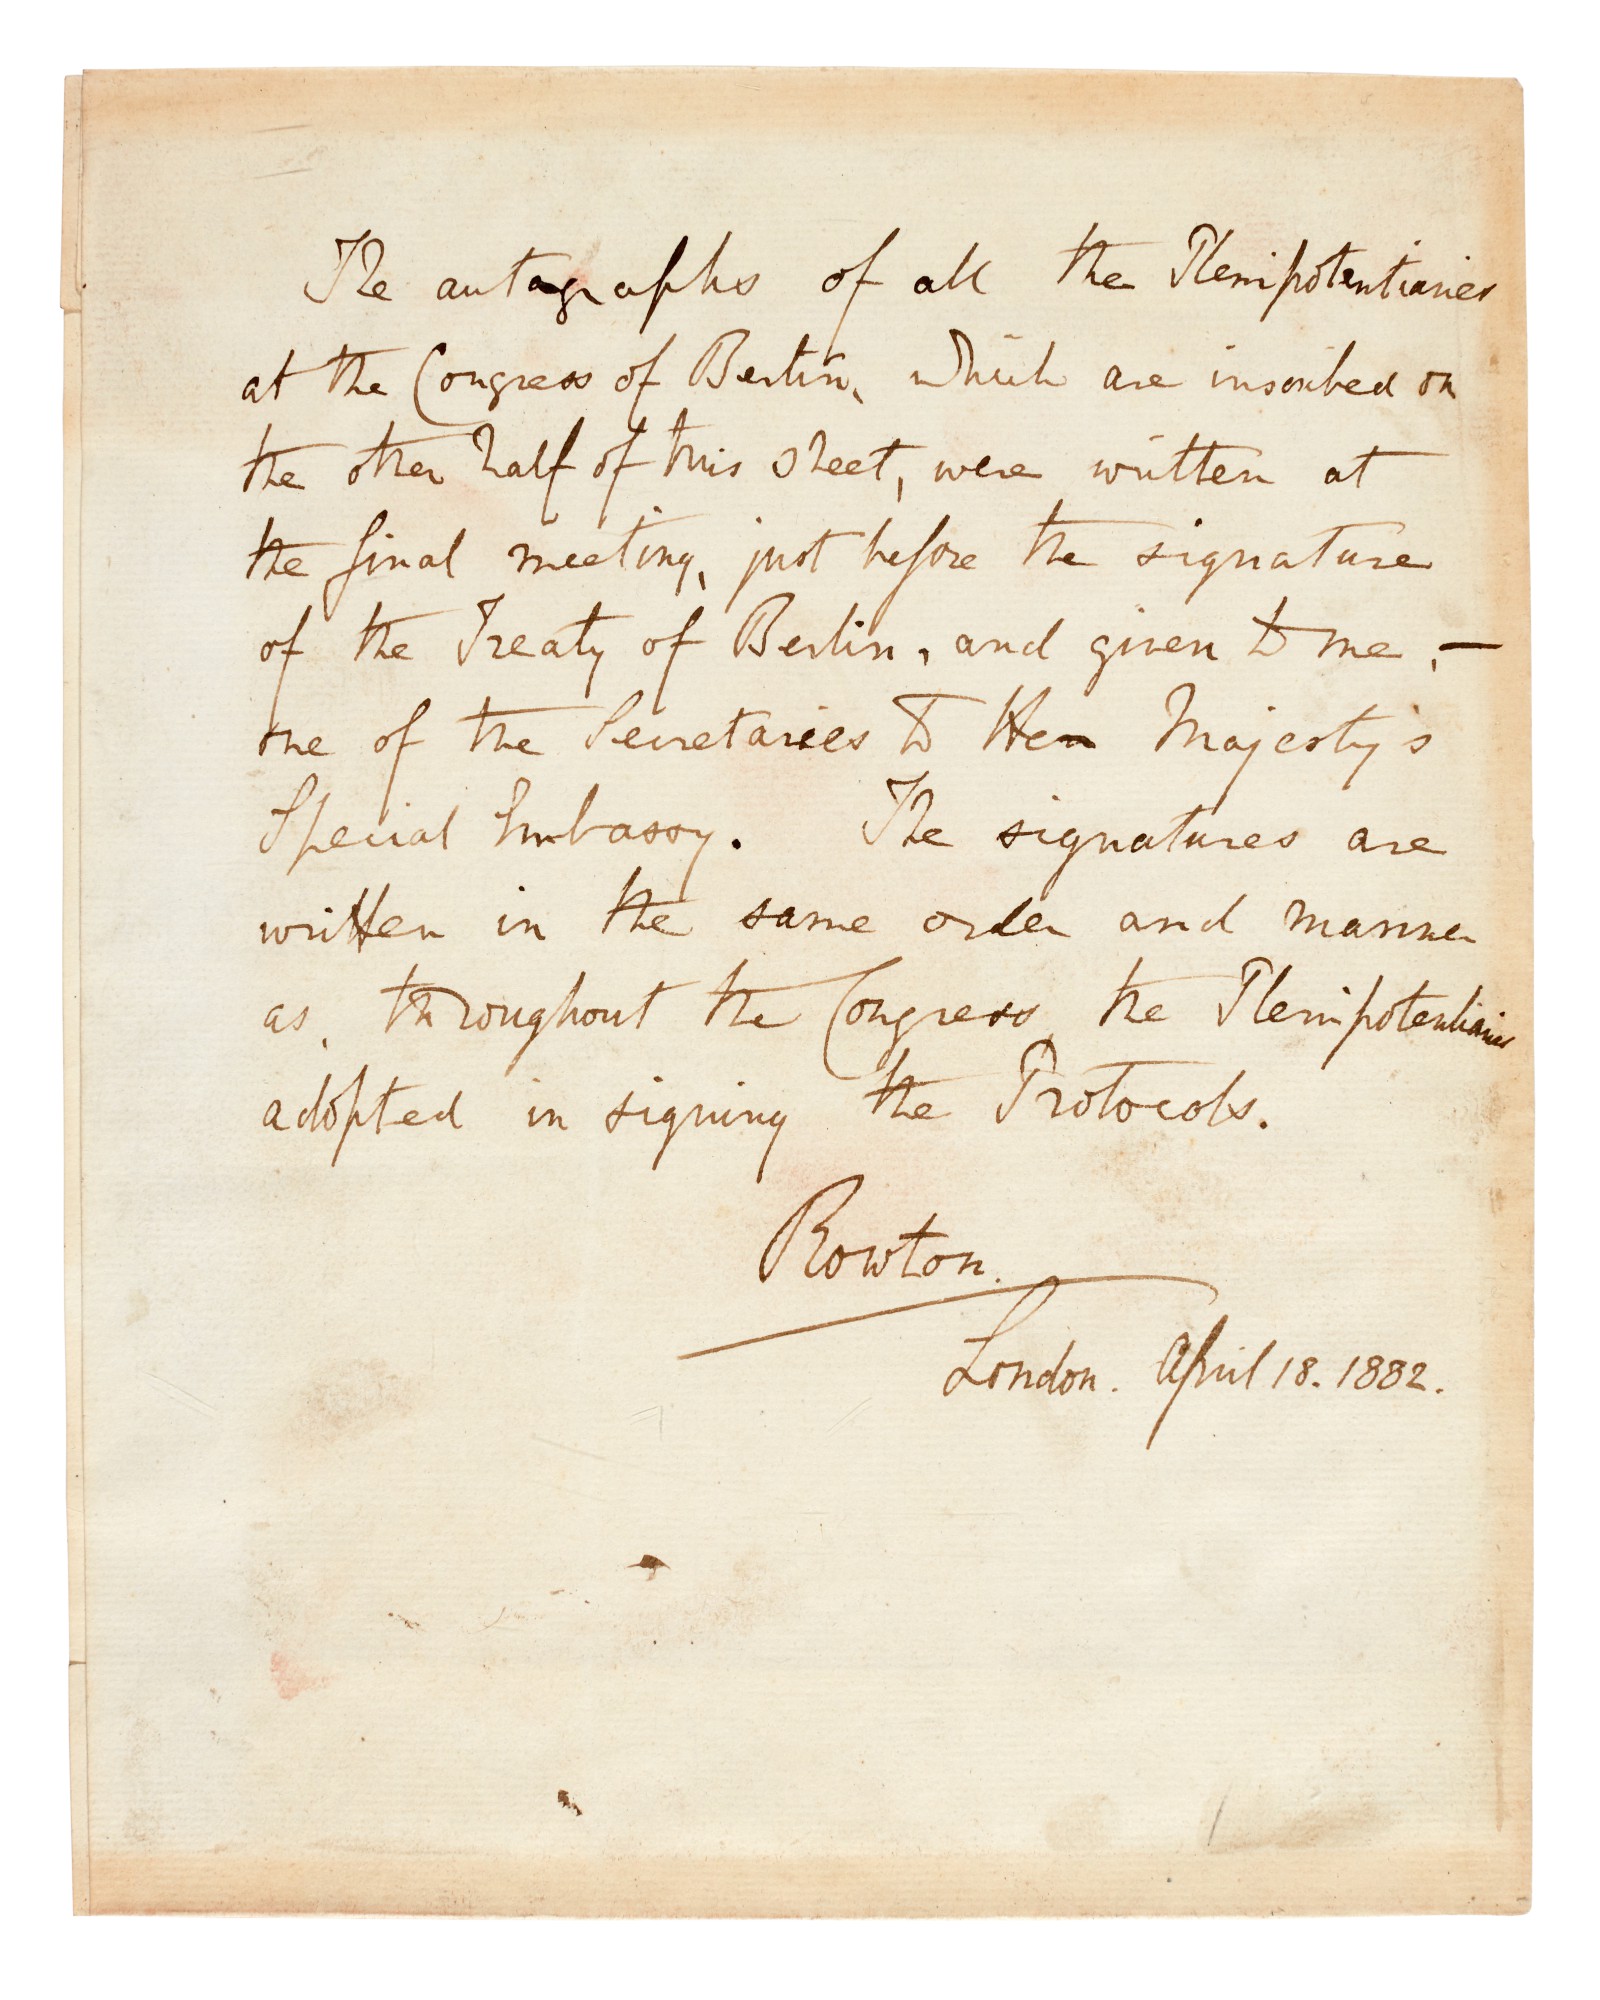 The autographs of all the Plenipotentiaries
at the Congress of Berlin, which are inscribed on
the other half of this sheet, were written at
the final meeting, just before the signature
of the Treaty of Berlin, and given to me, —
one of the Secretaries to Her Majesty's
Special Embassy. The signatures are
written in the same order and manner
as, throughout the Congress, the Plenipotentiaries
adopted in signing the Protocols.
Rowton.
London. April 18. 1882.